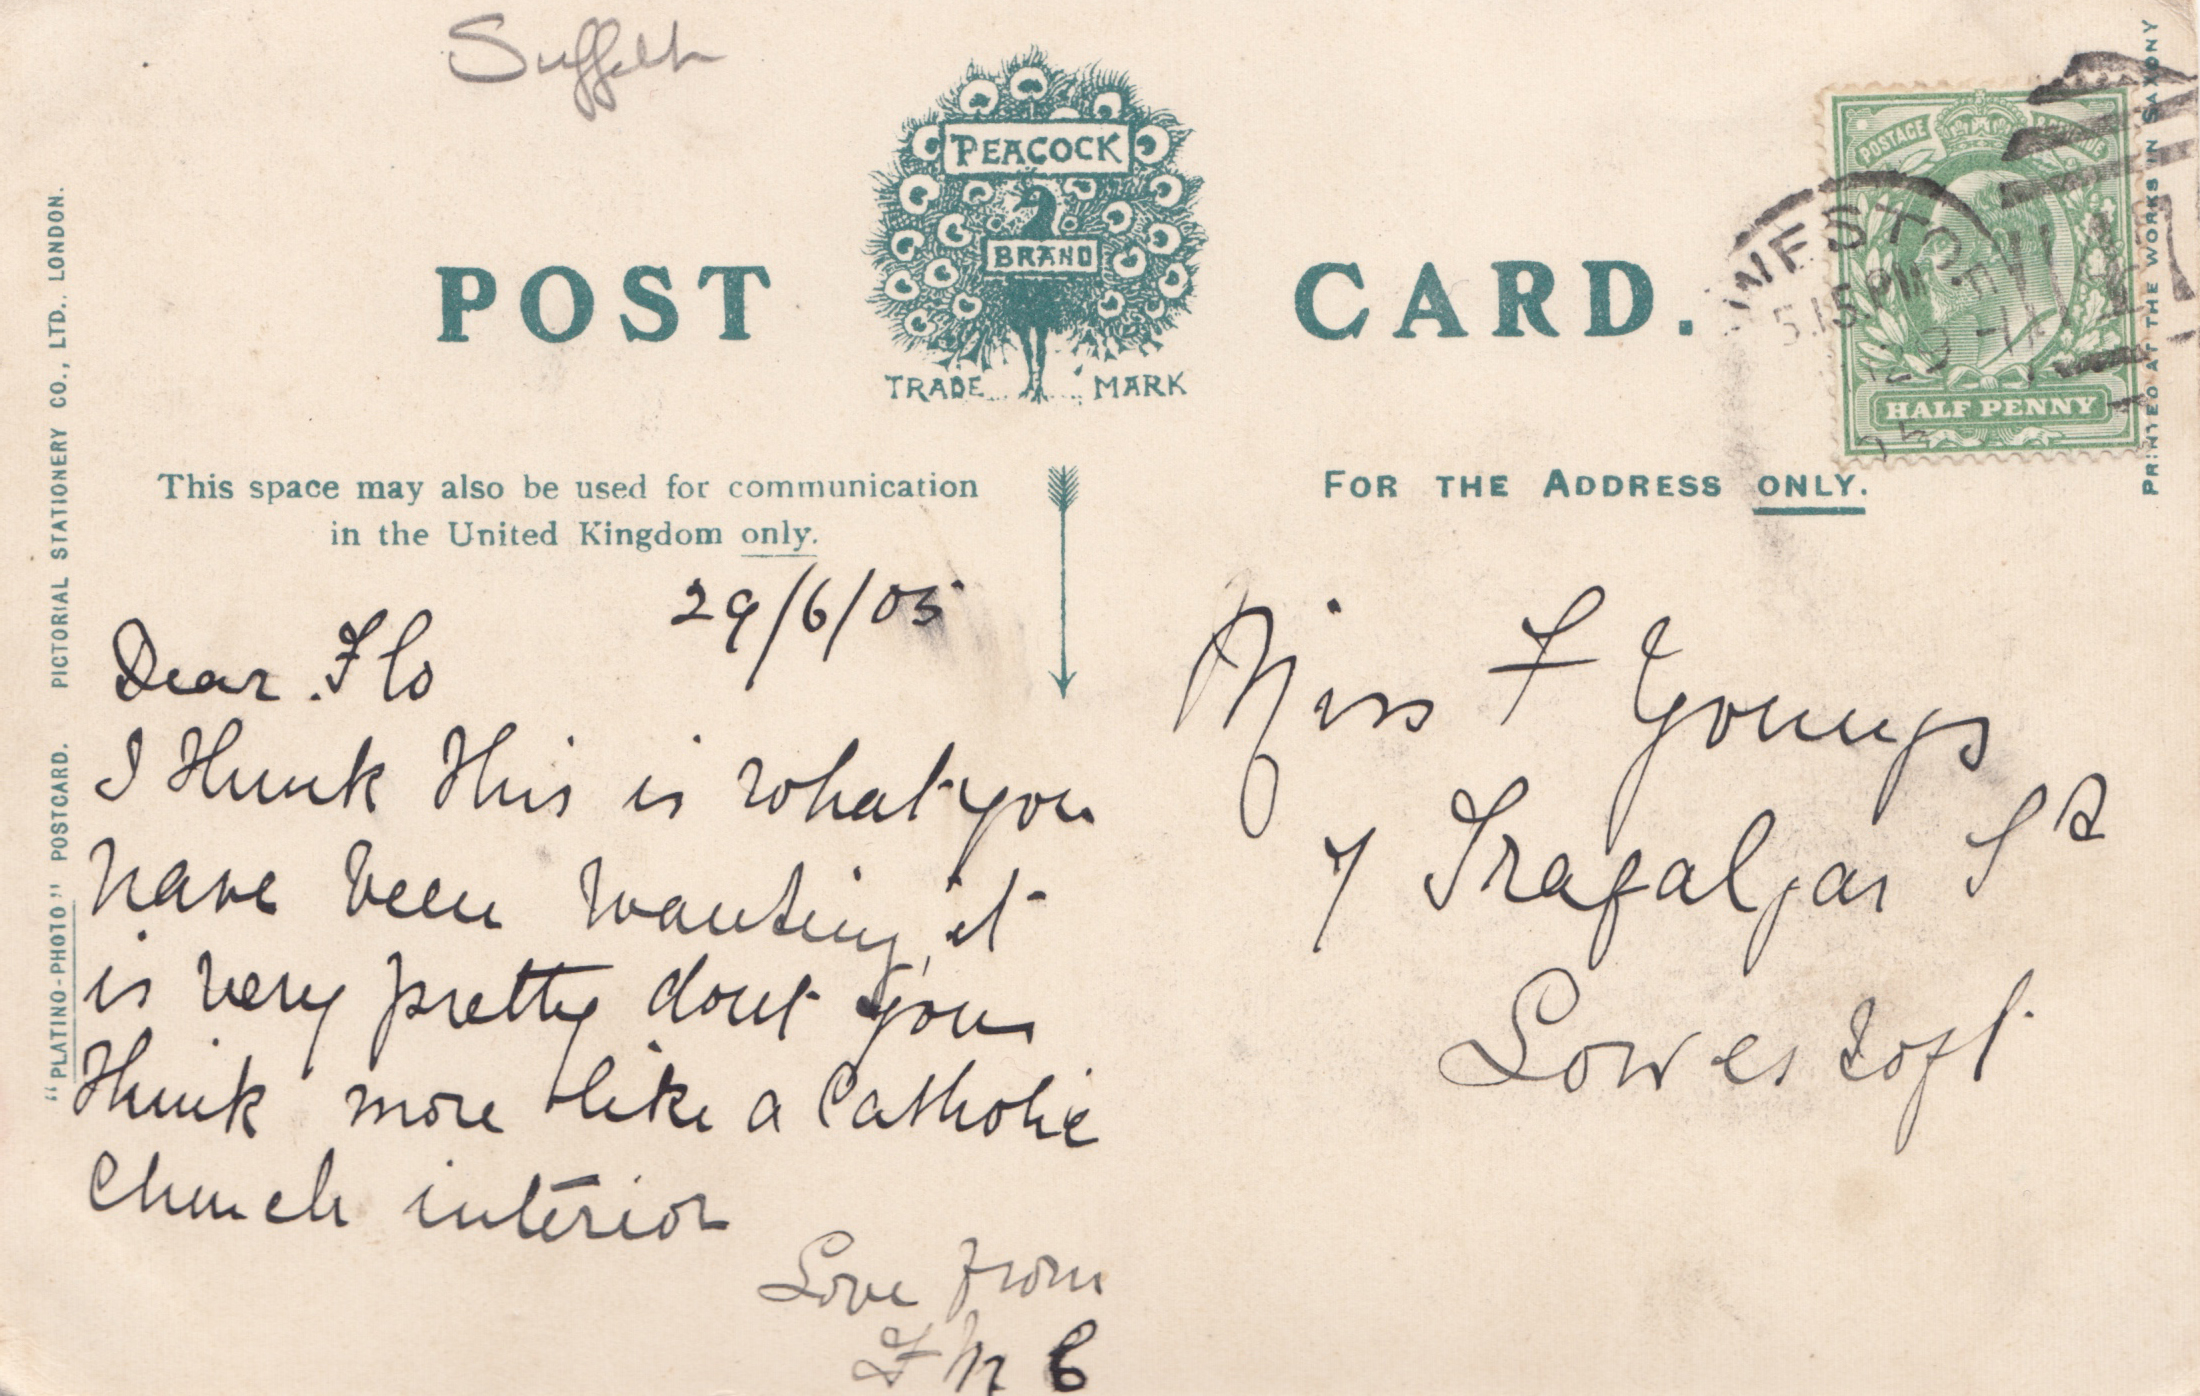 Suffolk
PEACOCK
BRAND
TRADE MARK
POST CARD.
POSTAGE REVENUE
HALF PENNY
WESTO
5.15 PM
29
05
PRINTED AT THE WORKS IN SAXONY
"PLATINO-PHOTO" POSTCARD. PICTORIAL STATIONERY CO., LTD., LONDON.
This space may also be used for communication
in the United Kingdom only.
FOR THE ADDRESS ONLY.
29/6/05
Dear Flo
I think this is what you
have been wanting, it
is very pretty dont you
think more like a Catholic
Church interior
Love from
Miss F Youngs
7 Trafalgar St
Lowestoft